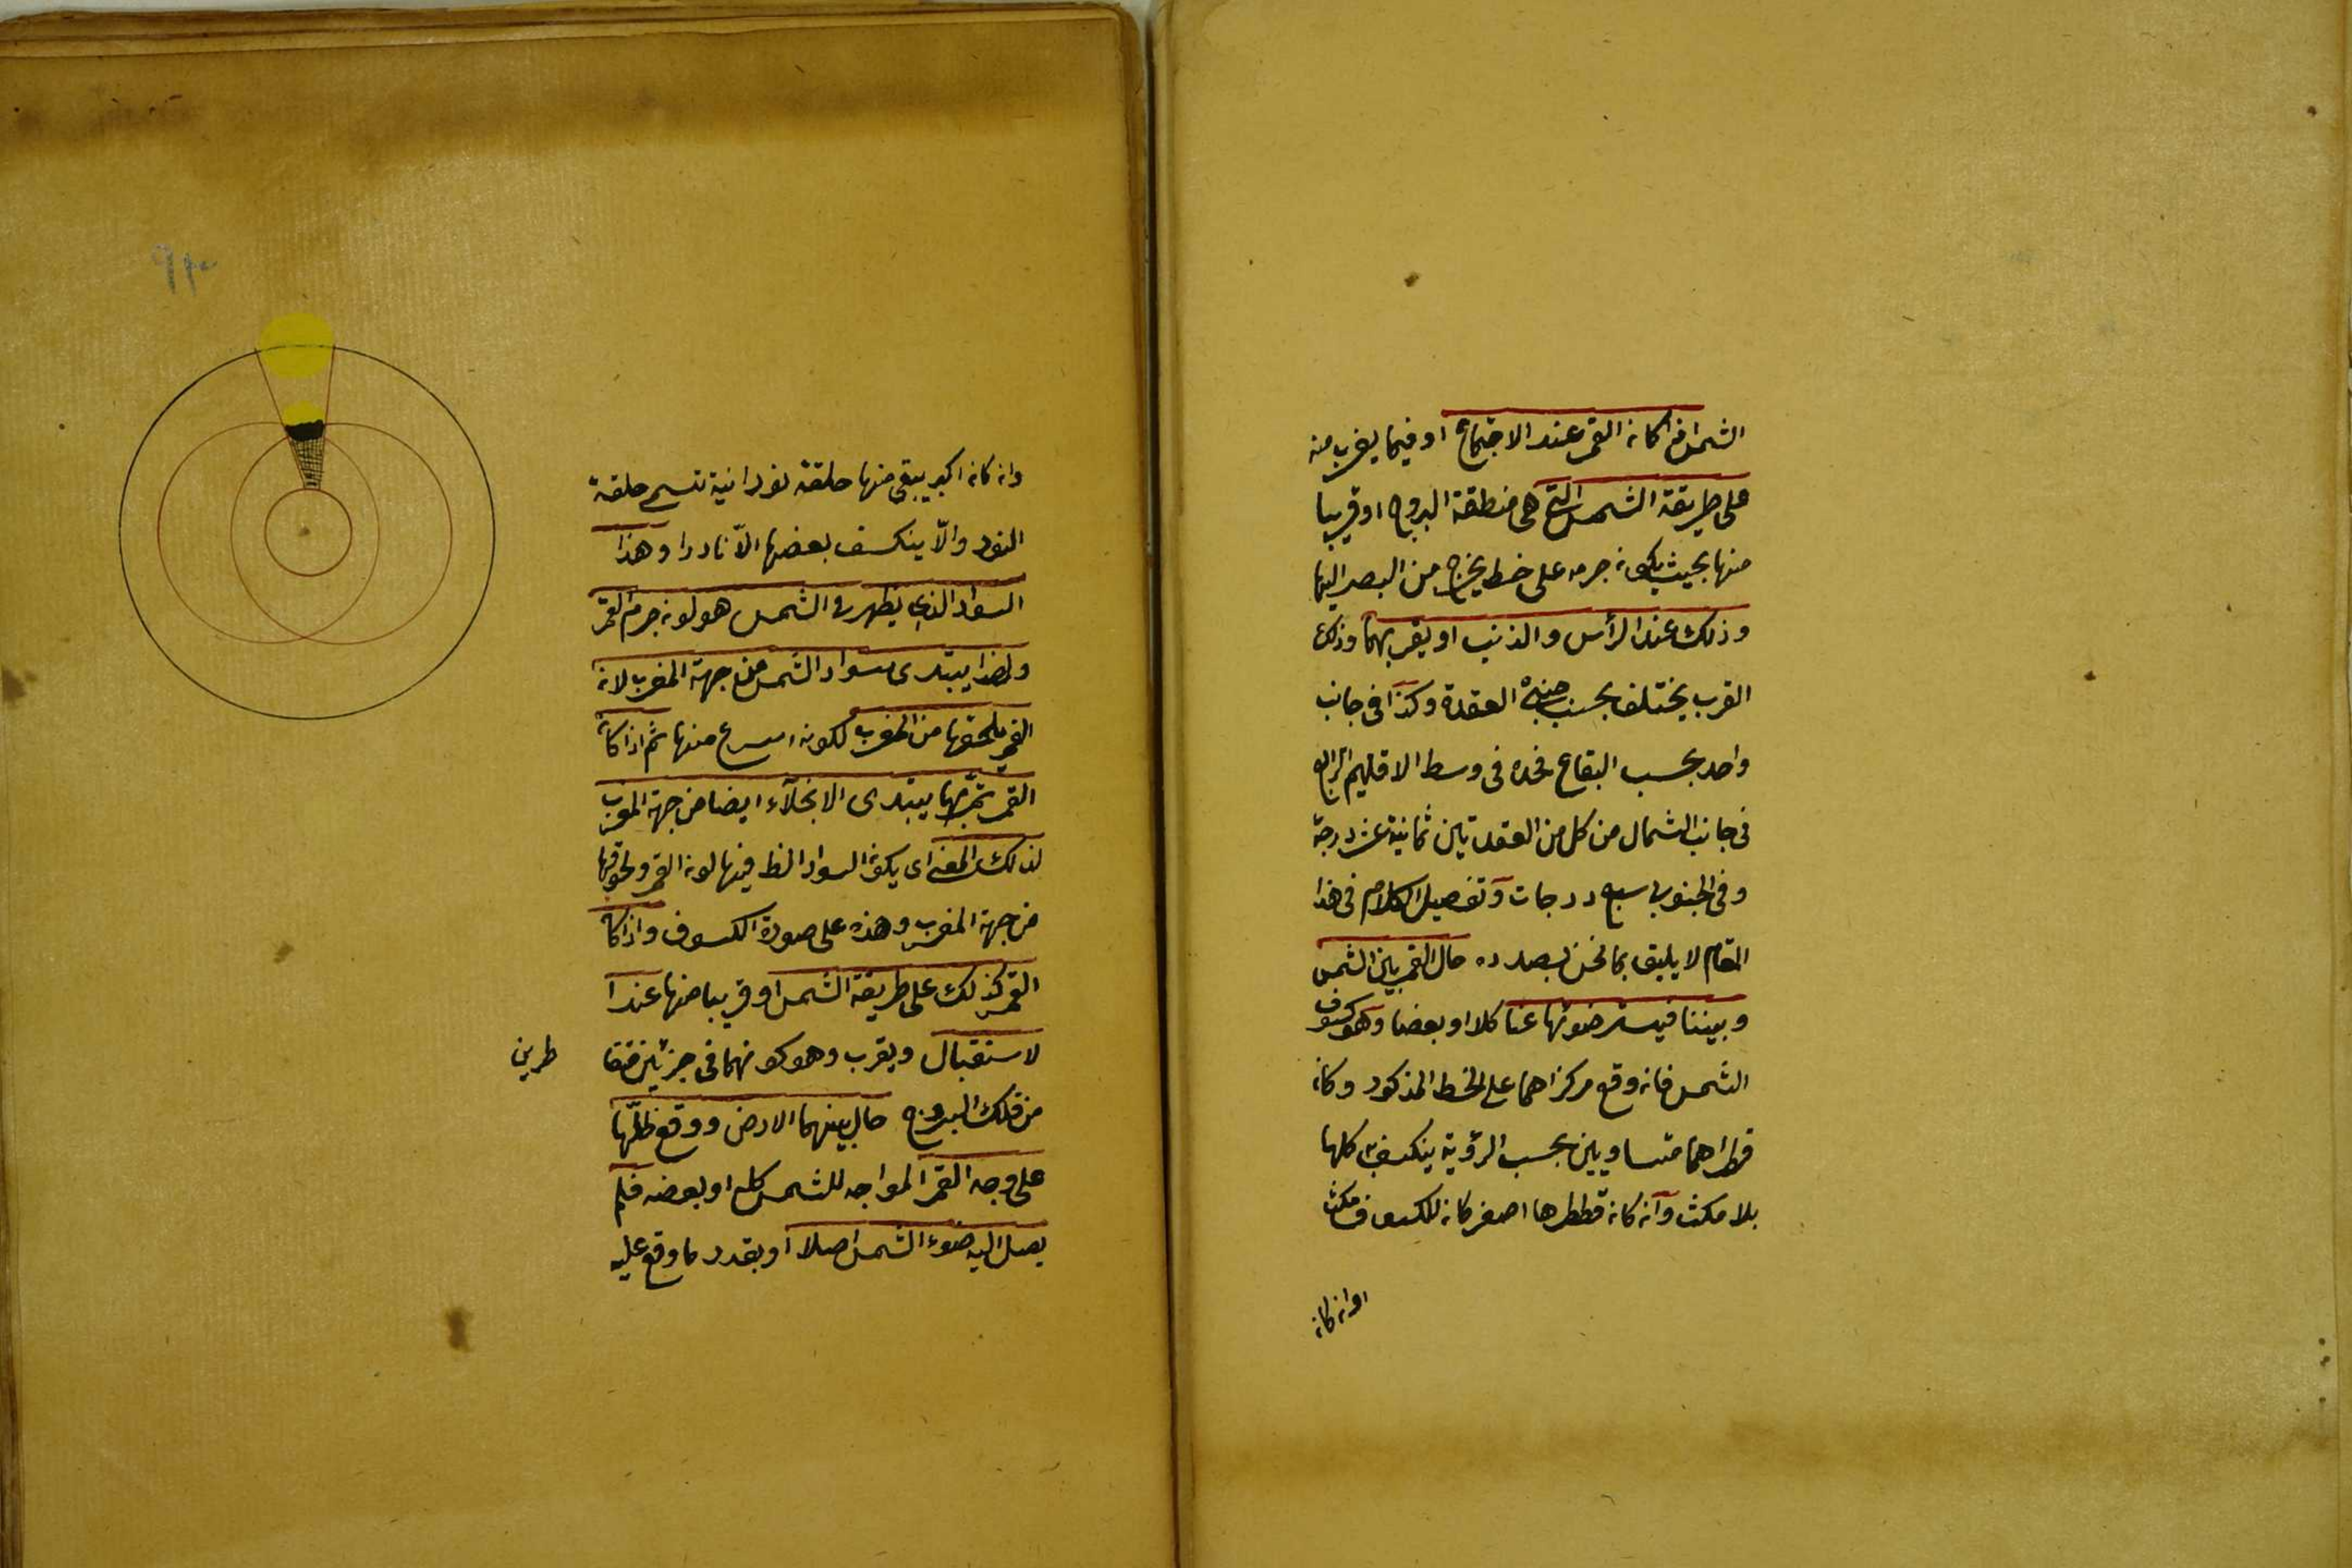 الشمس فاذا كانه القمر عند الاجتماع او فيما يقرب منه
على طريقة الشمس التي هي منطقة البروج او قريبا
منها بحيث يكون جرمه على خط يخرج من البصر اليها
وذلك عند الرأس والذنب او يقربهما وذلك
القرب يختلف بحسب جنبة العقدة وكذا في جانب
واحد بحسب البقاع فحده في وسط الاقليم الرابع
في جانب الشمال من كل من العقدتين ثمانية عشر درجة
وفي الجنوب سبع درجات وتفصيل الكلام في هذا
المقام لا يليق بما نحن بصدده حال القمر بين الشمس
وبيننا فيستر ضوئها عنا كلا او بعضا وهو كسوف
الشمس فانه وقع مركزاهما على الخط المذكور وكانه
قطراهما متساويين بحسب الرؤية ينكسف كلها
بلا مكث وانه كانه قطرها اصغر كانه للكسوف مكث
وانه كانه
وانه كانه اكبر يبقى منها حلقة نورانية تسمى حلقة
النور والّا ينكسف بعضها الّا نادرا وهذا
السواد الذي يظهر في الشمس هو لونه جرم القمر
ولهذا يبتدى سواد الشمس من جهة المغرب لانه
القمر يلحقها من المغرب لكونه اسرع منها ثم اذا كانه
القمر يبتدى الانجلآء ايضا من جهة المغرب
لذلك المعنى اى يكونه السواد الظ فيها لونه القمر ولحوقها
من جهة المغرب وهذه على صورة الكسوف واذا كانه
القمر كذلك على طريقة الشمس او قريبا منها عند ا
لاستقبال ويقرب وهو كونهما في جزئين متقا
طرين
من فلك البروج حال بينهما الارض ووقع ظلّها
على وجه القمر المواجه للشمس كله او بعضه فلم
يصل اليه ضوء الشمس اصلا او بقدر ما وقع عليه